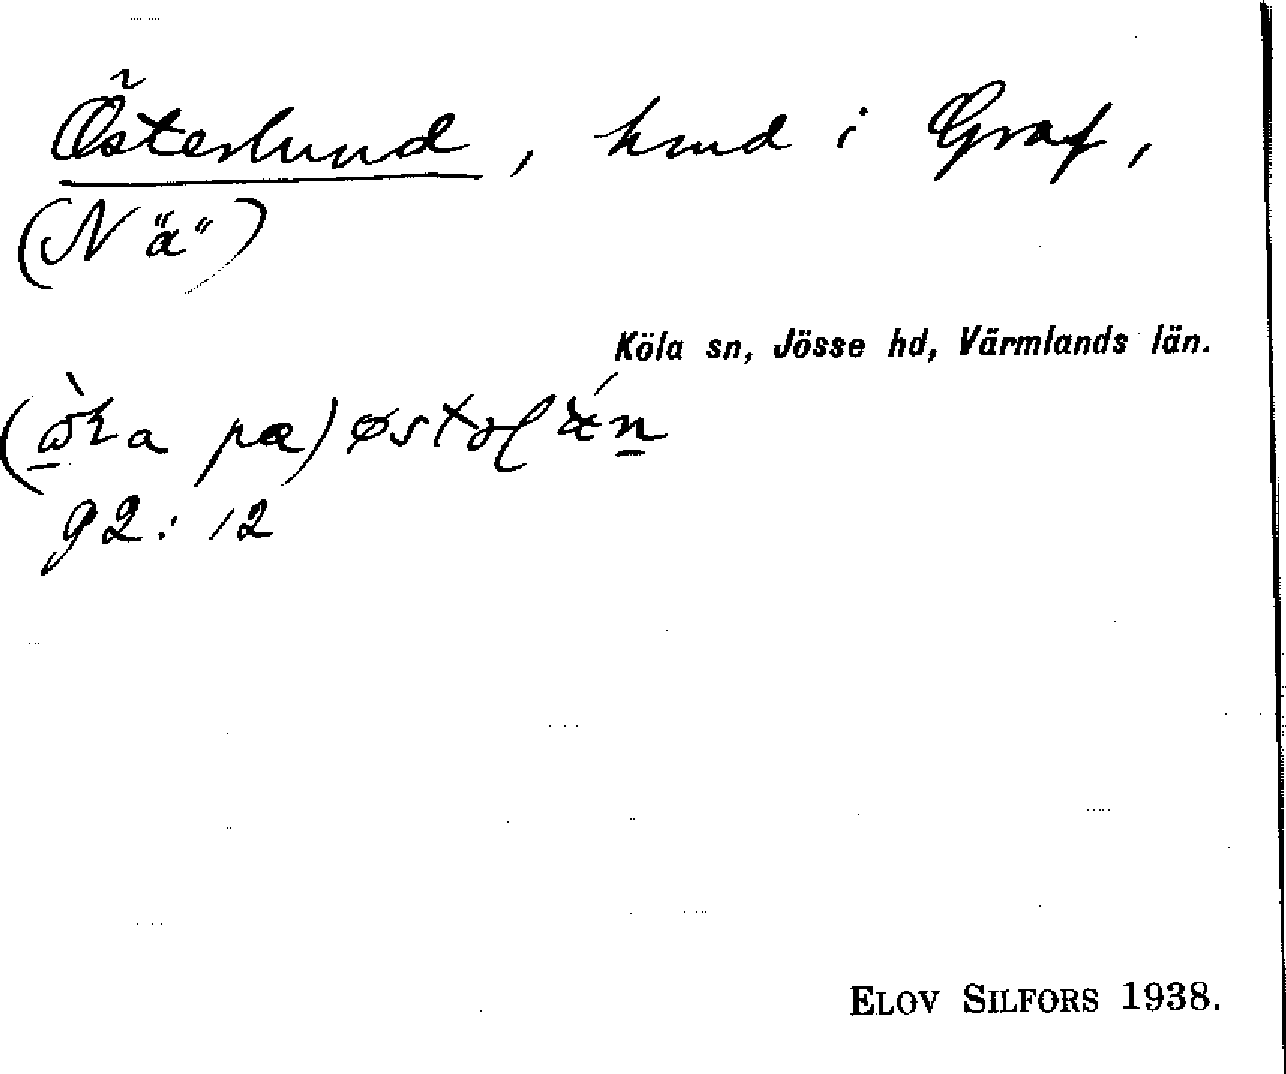 Österlund, hmd i Graf,
(N "ä")
Köla sn, Jösse hd, Värmlands län.
92: 12
ELOV SILFORS 1938.